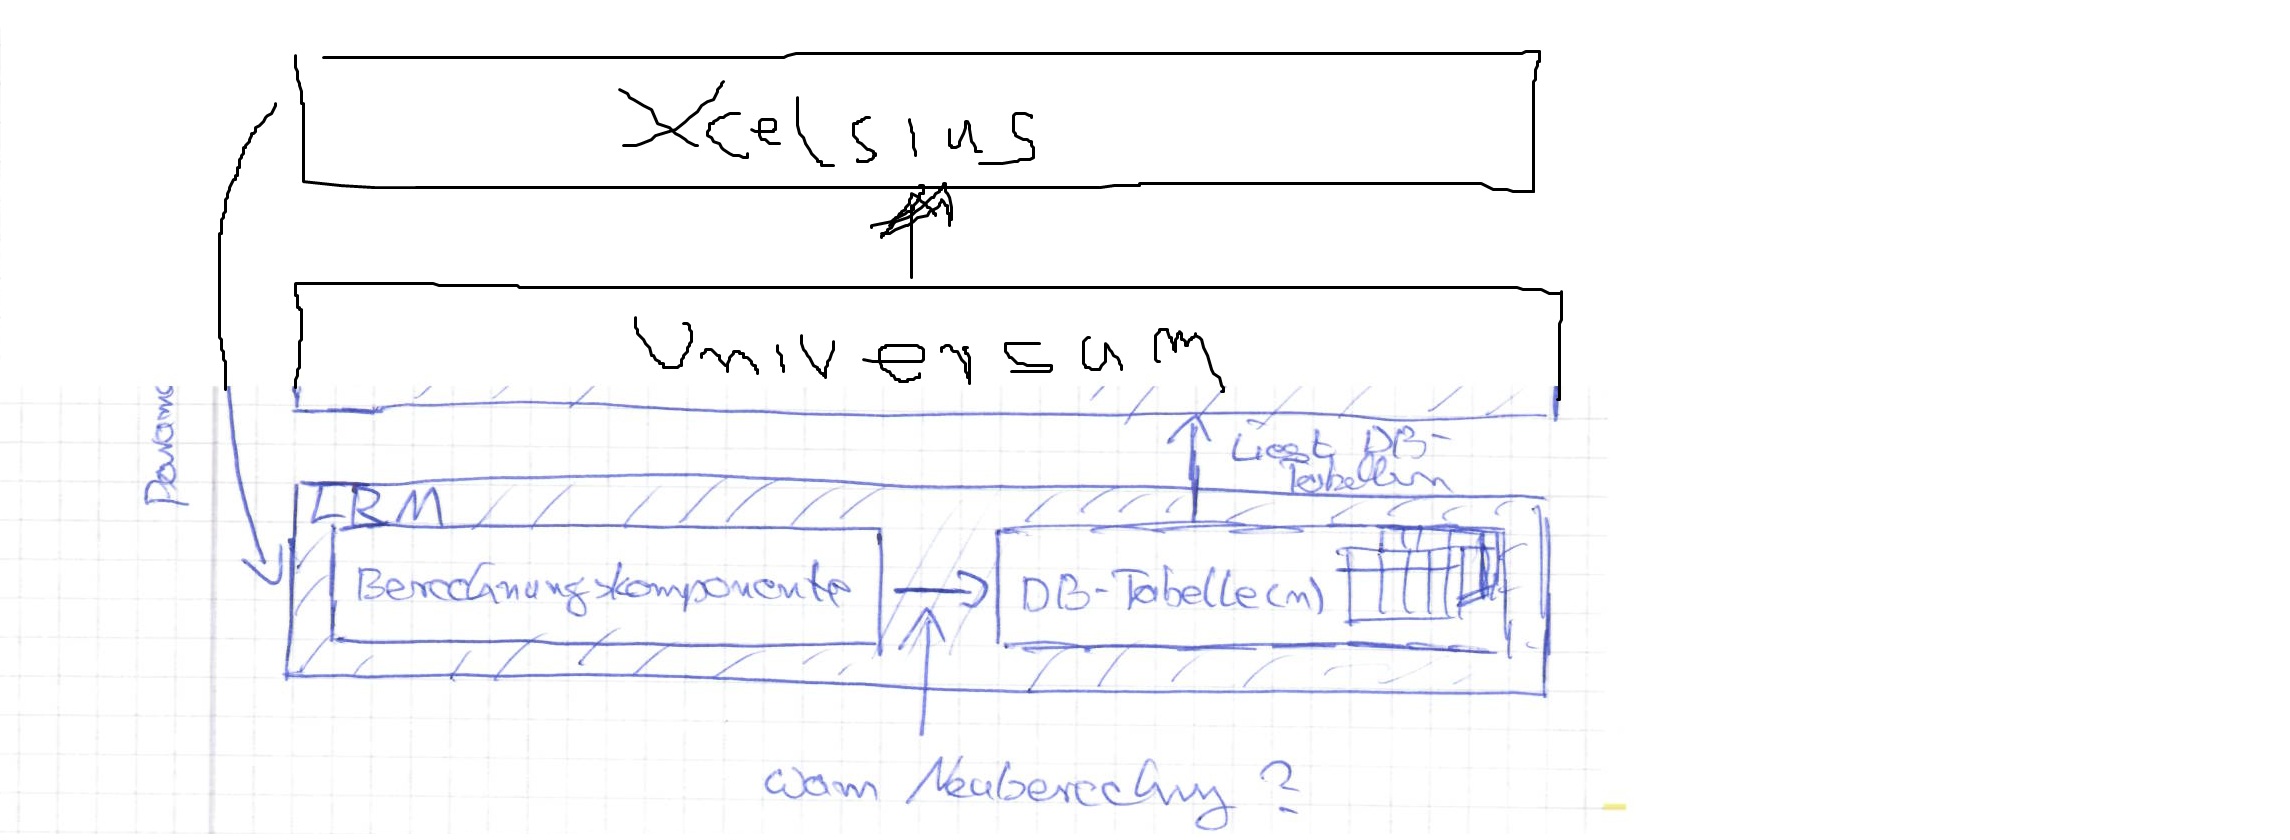 Xcelsius
Universum
Param
Liest DB-
Tabellen
LRM
Berechnungskomponente
DB-Tabelle(n)
wann Neuberechnung ?